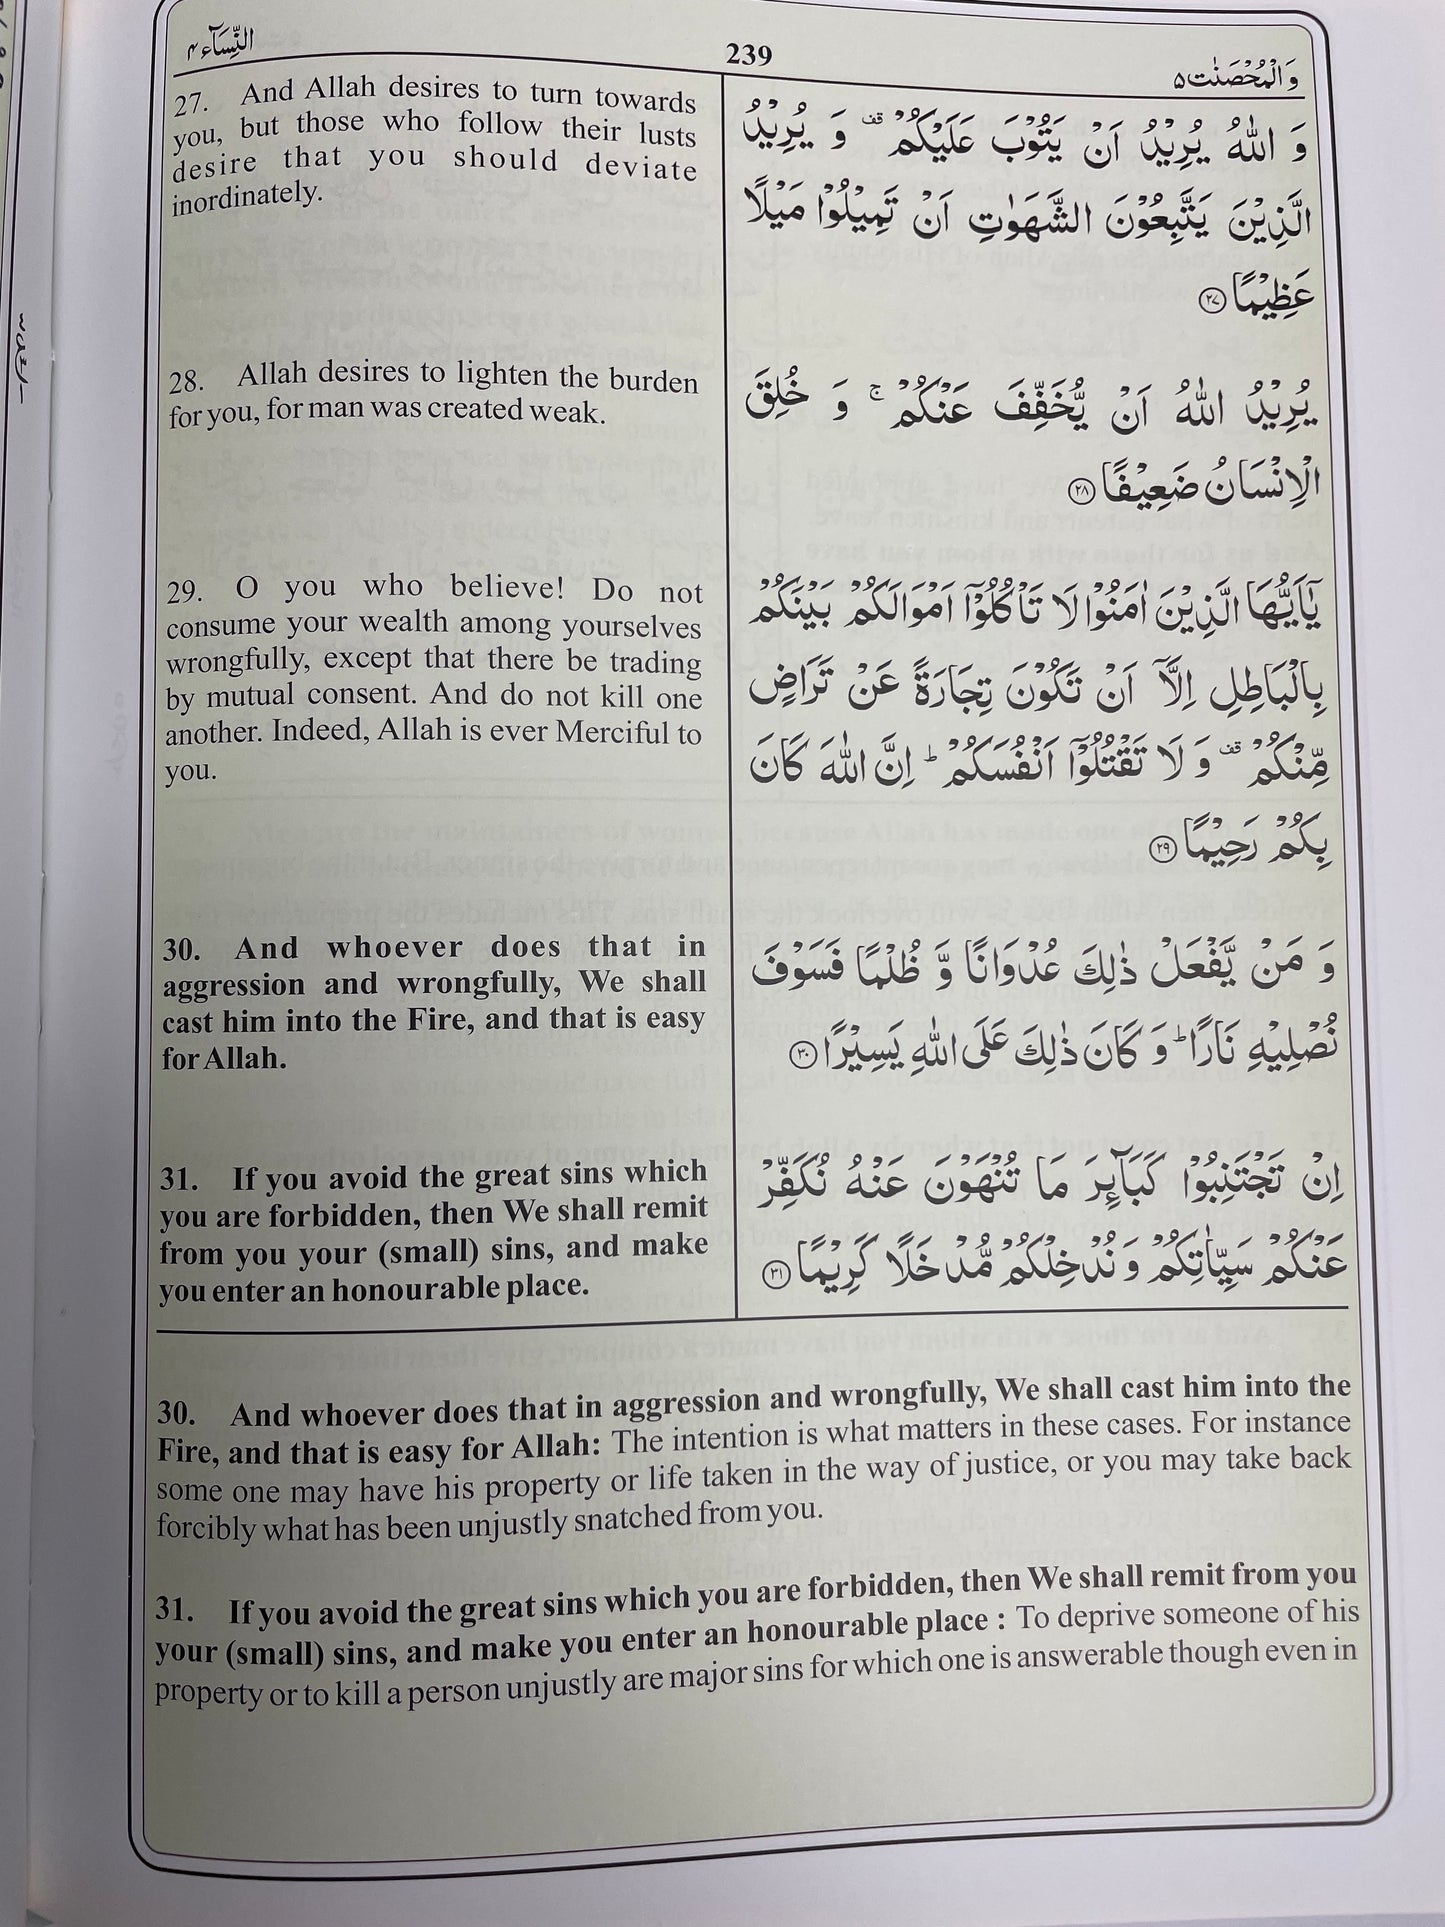 النِّسَآء ۴
239
وَالْمُحْصَنٰت ۵
27. And Allah desires to turn towards
you, but those who follow their lusts
desire that you should deviate
inordinately.
وَ اللّٰهُ يُرِيْدُ اَنْ يَّتُوْبَ عَلَيْكُمْ ۟ وَ يُرِيْدُ
الَّذِيْنَ يَتَّبِعُوْنَ الشَّهَوٰتِ اَنْ تَمِيْلُوْا مَيْلًا
عَظِيْمًا ۲۷
28. Allah desires to lighten the burden
for you, for man was created weak.
يُرِيْدُ اللّٰهُ اَنْ يُّخَفِّفَ عَنْكُمْ ۚ وَ خُلِقَ
الْاِنْسَانُ ضَعِيْفًا ۲۸
29. O you who believe! Do not
consume your wealth among yourselves
wrongfully, except that there be trading
by mutual consent. And do not kill one
another. Indeed, Allah is ever Merciful to
you.
يٰۤاَيُّهَا الَّذِيْنَ اٰمَنُوْا لَا تَاْكُلُوْۤا اَمْوَالَكُمْ بَيْنَكُمْ
بِالْبَاطِلِ اِلَّاۤ اَنْ تَكُوْنَ تِجَارَةً عَنْ تَرَاضٍ
مِّنْكُمْ قف وَ لَا تَقْتُلُوْۤا اَنْفُسَكُمْ ؕ اِنَّ اللّٰهَ كَانَ
بِكُمْ رَحِيْمًا ۲۹
30. And whoever does that in
aggression and wrongfully, We shall
cast him into the Fire, and that is easy
for Allah.
وَ مَنْ يَّفْعَلْ ذٰلِكَ عُدْوَانًا وَّ ظُلْمًا فَسَوْفَ
نُصْلِيْهِ نَارًا ؕ وَ كَانَ ذٰلِكَ عَلَى اللّٰهِ يَسِيْرًا ۳۰
31. If you avoid the great sins which
you are forbidden, then We shall remit
from you your (small) sins, and make
you enter an honourable place.
اِنْ تَجْتَنِبُوْا كَبَآئِرَ مَا تُنْهَوْنَ عَنْهُ نُكَفِّرْ
عَنْكُمْ سَيِّاٰتِكُمْ وَ نُدْخِلْكُمْ مُّدْخَلًا كَرِيْمًا ۳۱
30. And whoever does that in aggression and wrongfully, We shall cast him into the
Fire, and that is easy for Allah: The intention is what matters in these cases. For instance
some one may have his property or life taken in the way of justice, or you may take back
forcibly what has been unjustly snatched from you.
31. If you avoid the great sins which you are forbidden, then We shall remit from you
your (small) sins, and make you enter an honourable place : To deprive someone of his
property or to kill a person unjustly are major sins for which one is answerable though even in